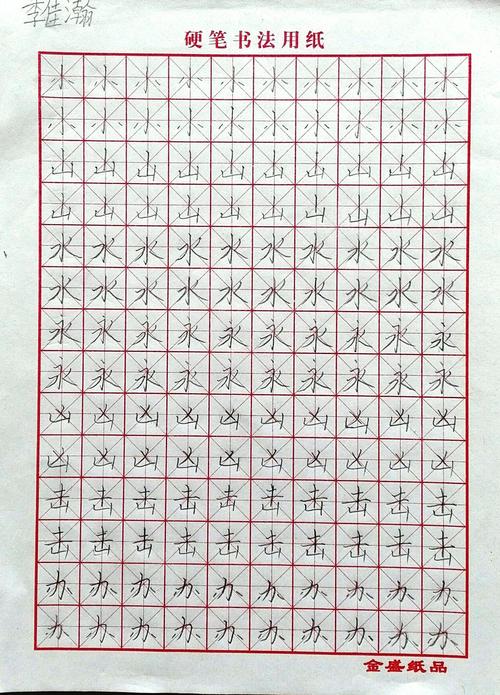 李佳瀚
硬笔书法用纸
小小小小小小小小小小
小小小小小小小小小小
山山山山山山山山山山
山山山山山山山山山山
水水水水水水水水水水
水水水水水水水水水水
永永永永永永永永永永
永永永永永永永永永永
凶凶凶凶凶凶凶凶凶凶
凶凶凶凶凶凶凶凶凶凶
击击击击击击击击击击
击击击击击击击击击击
办办办办办办办办办办
办办办办办办办办办办
金盛纸品